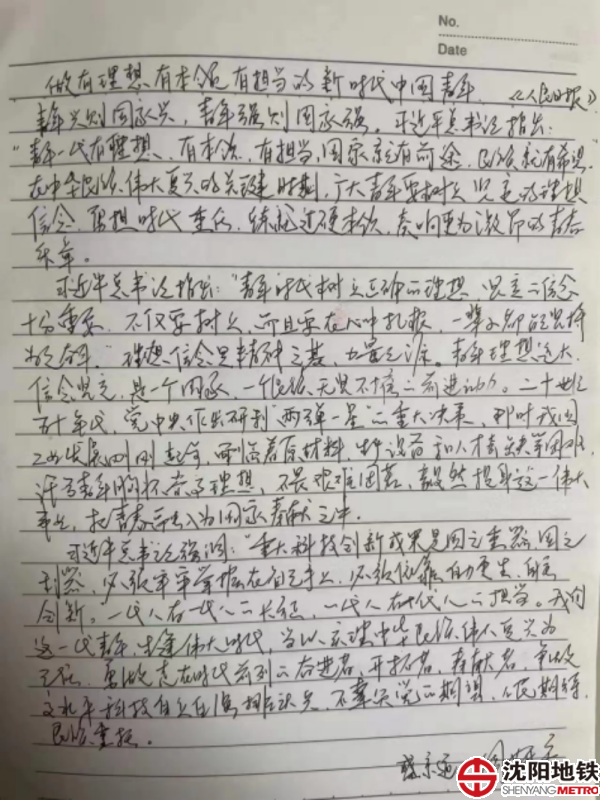 No.
Date
做有理想有本领有担当的新时代中国青年 《人民日报》
青年兴则国家兴，青年强则国家强。习近平总书记指出：
"青年一代有理想、有本领、有担当，国家就有前途，民族就有希望
在中华民族伟大复兴的关键时期，广大青年要树立坚定的理想
信念，勇担时代重任，练就过硬本领，奏响更为激昂的青春
乐章。
习近平总书记指出："青年时代树立正确的理想、坚定的信念
十分重要，不仅要树立，而且要在心中扎根，一辈子都能坚持
为之奋斗。"理想信念是精神之基，力量之源。青年理想远大
信念坚定，是一个国家、一个民族无坚不摧的前进动力。二十世纪
五十年代，党中央作出研制"两弹一星"的重大决策，那时我国
工业发展刚刚起步，面临着原材料、生产设备和人才等
青年胸怀 理想，不畏艰难困苦，毅然投身这一伟大
事业，把青春 入为国家奉献之中。
习近平总书记强调："重大科技创新成果是国之重器、国之
利器，必须牢牢掌握在自己手上，必须依靠自力更生、自主
创新。一代人有一代人的长征，一代人有一代人的担当。我们
这一代青年，生逢伟大时代，当以实现中华民族伟大复兴为
己任，勇做走在时代前列的奋进者、开拓者、奉献者，
高水平科技自立自强 ，不辜负党的期望、人民期待、
民族重托。
沈阳地铁
SHENYANG METRO